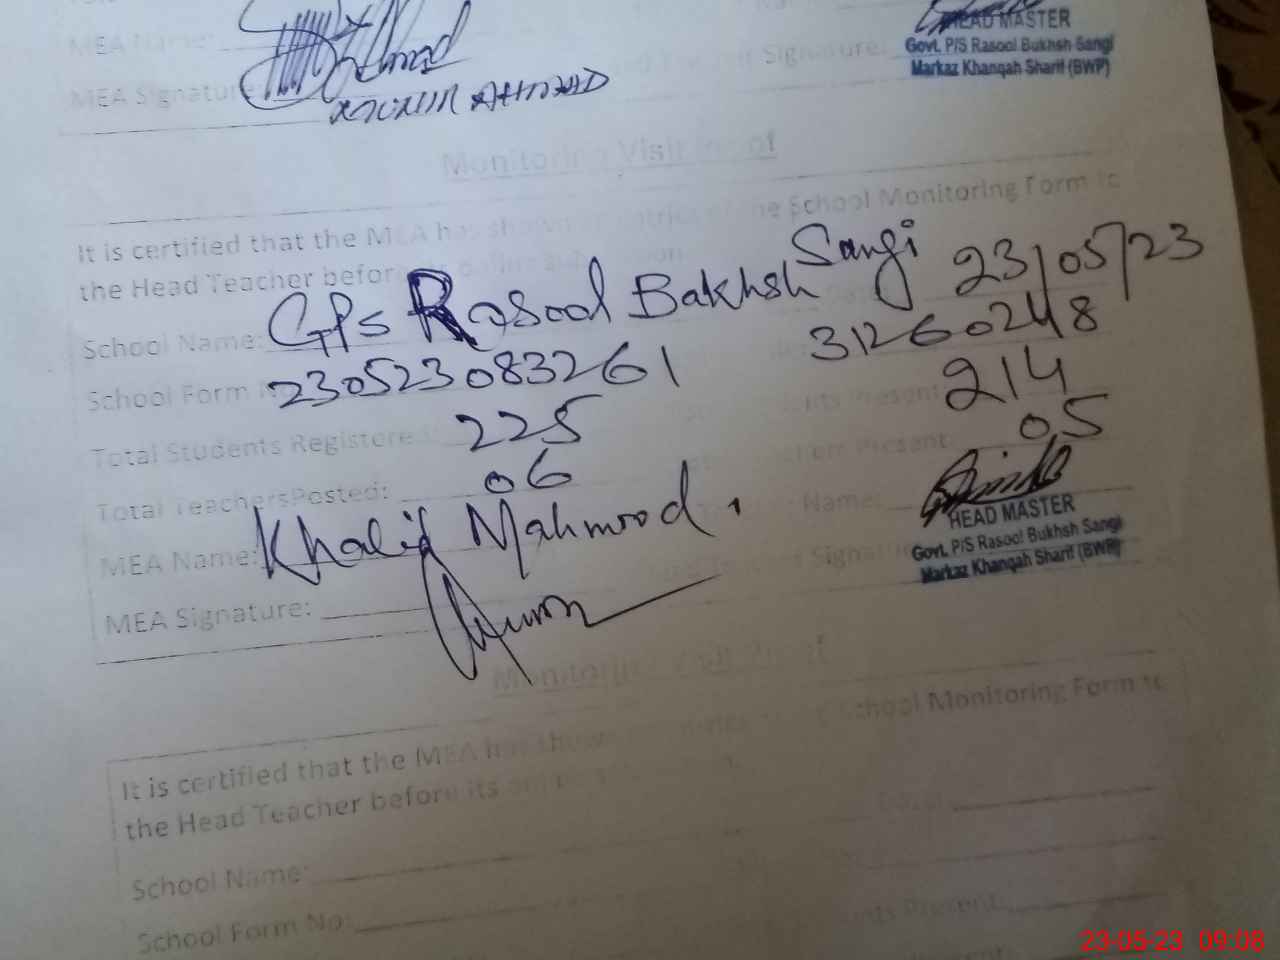 MEA Name:
MEA Signature: Ahmad Signature:
MUNIR AHMAD
HEAD MASTER
Govt. P/S Rasool Bukhsh Sangi
Markaz Khanqah Sharif (BWP)
Monitoring Visit Proof
It is certified that the MEA has shown entries of the School Monitoring Form to
the Head Teacher before its online submission
School Name: GPS Rasool Bakhsh Sangi Date: 23/05/23
School Form No: 230523083261 31260248
Total Students Registered: 225 Students Present: 214
Total TeachersPosted: 06 Present: 05
MEA Name: Khalid Mahmood. Name:
MEA Signature: Signature:
HEAD MASTER
Govt. P/S Rasool Bukhsh Sangi
Markaz Khanqah Sharif (BWP)
Monitoring Visit Proof
It is certified that the MEA has shown entries School Monitoring Form to
the Head Teacher before its
School Name: Date:
School Form No:
Students Present:
23-05-23 09:08